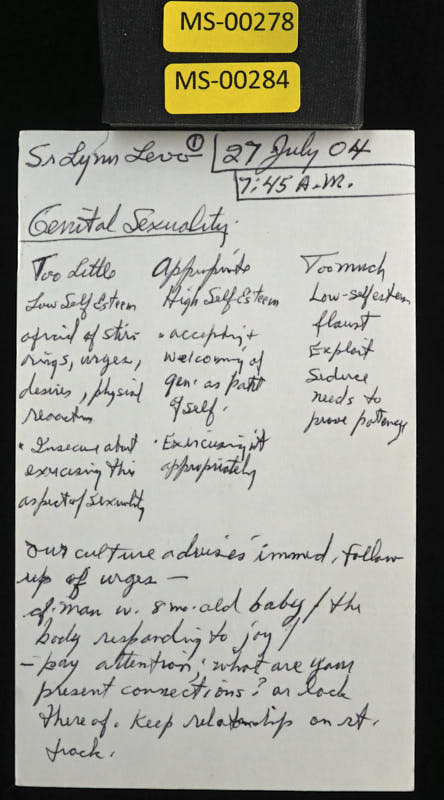 MS-00278
MS-00284
Sr Lynn Levo ①
27 July 04
7:45 A.M.
Genital Sexuality.
Too Little
Low Self Esteem
afraid of stir-
rings, urges,
desires, physical
reaction
• Insecure about
exercising this
aspect of sexuality
Appropriate
High Self Esteem
• accepting +
welcoming of
gen. as part
of self.
• Exercising it
appropriately
Too much
Low-self esteem
flaunt
Exploit
Seduce
needs to
prove potency
Our culture advises immed. follow
up of urges —
cf. man w. 8 mo. old baby / the
body responding to joy /
— pay attention: what are your
present connections? or lack
thereof. Keep relationship on rt.
track.